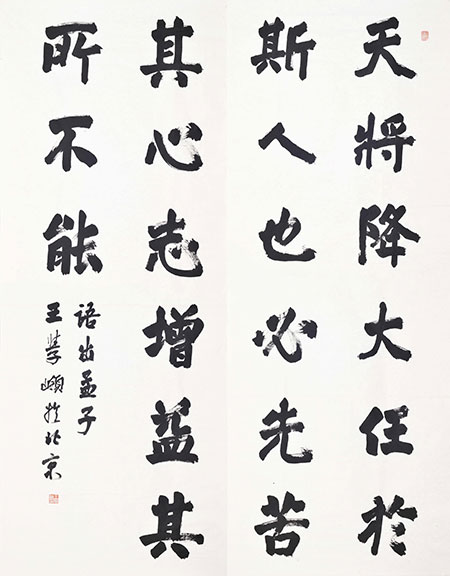 天將降大任於
斯人也必先苦
其心志增益其
所不能
语出孟子
王學嶺於北京